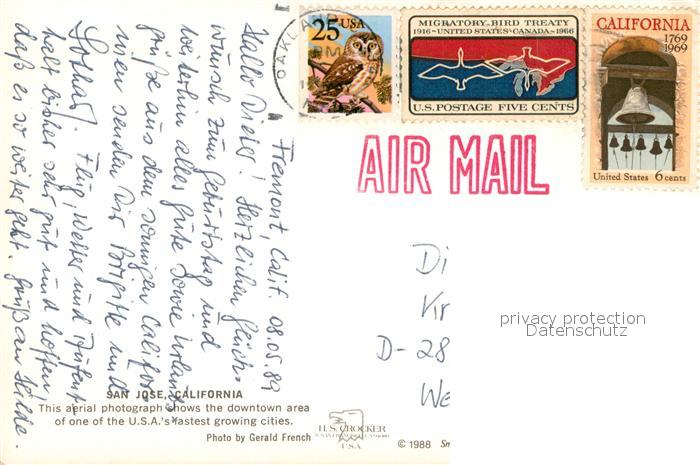 25 USA
MIGRATORY BIRD TREATY
1916 - UNITED STATES · CANADA - 1966
U.S. POSTAGE FIVE CENTS
CALIFORNIA
1769
1969
United States 6 cents
OAKLAN
PM
AIR MAIL
Fremont, Calif. 08.05.89
Hallo Dieter! Herzlichen Glück-
wunsch zum Geburtstag und
weiterhin alles Gute sowie Urlaubs-
grüße aus dem sonnigen Califor-
nien senden Dir Brigitte und
Lothar. Flug, Wetter und
halt bisher sehr gut und hoffen,
daß es so weiter geht. Gruß an Hilde.
Di
Kr
D-28
We
privacy protection
Datenschutz
SAN JOSE, CALIFORNIA
This aerial photograph shows the downtown area
of one of the U.S.A.'s fastest growing cities.
Photo by Gerald French
H.S. CROCKER
U.S.A.
© 1988 Sm